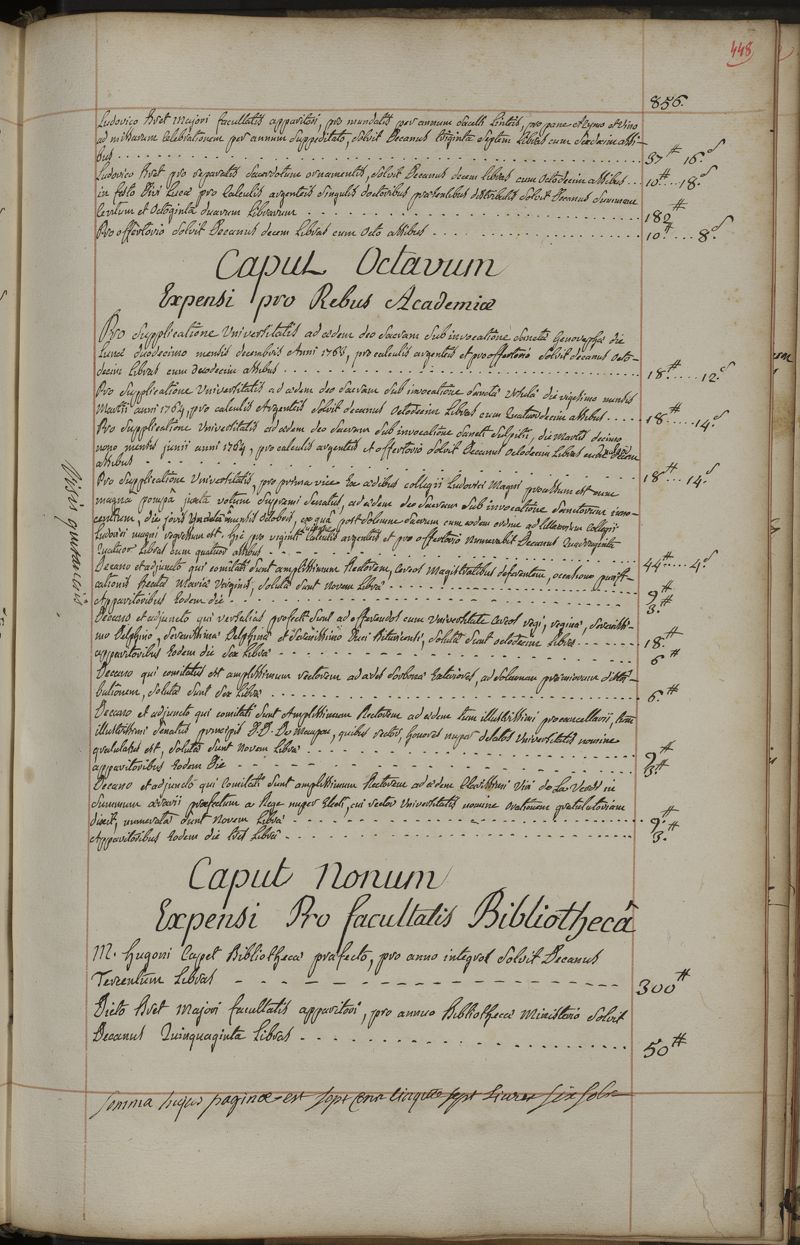 448
856.
Ludovico Bret Majori facultatis apparitori, pro mundatis per annum facult. Linteis, pro pane Azymo et Vino
ad missarum Celebrationem per annum suppeditato, solvit Decanus triginta Septem Libras cum Sexdecim assi-
bus 37# 16.s
Ludovico Bret pro reparatis Sacerdotum ornamentis, solvit Decanus decem Libras cum Octodecim assibus 10# 18.s
in festo Divi Lucæ pro Calculis argenteis singulis doctoribus præsentibus distributis solvit Decanus Summam
Centum et Octoginta duarum Librarum 182#
Pro offertorio Solvit Decanus decem Libras cum Octo assibus 10# 8.s
Caput Octavum
Expensi pro Rebus Academiæ
Pro Supplicatione Universitatis ad ædem deo Sacram Sub invocatione Sanctæ Genovefæ die
Lunæ duodecimo mensis decembris Anni 1763, pro calculis argenteis et pro offertorio Solvit decanus Octo-
decim Libras cum duodecim assibus 18# 12.s
Pro Supplicatione Universitatis ad ædem deo Sacram Sub invocatione die vigesimo mensis
Martii anni 1764, pro calculis Argenteis Solvit decanus Octodecim Libras cum Quatuordecim assibus 18# 14.s
Pro Supplicatione Universitatis ad ædem deo Sacram Sub invocatione Sancti Sulpitii, die Martis decimo
nono mensis junii anni 1764, pro calculis argenteis et offertorio Solvit Decanus Octodecim Libras cum
assibus 18# 14.s
Pro Supplicatione Universitatis, pro prima vice ex ædibus collegii Ludovici Magni processum est cum
magnâ pompâ juxta votum Supremi Senatus, ad ædem deo Sacram Sub invocatione Sanctorum inno-
centium, die jovis mensis Octobris, ex quâ post Solemne Sacrum eodem ordine ad Collegii
Ludovici magni regressum est. pro viginti Calculis argenteis et pro offertorio numeravit Decanus Quadraginta
Quatuor Libras cum quatuor assibus 44# 4.s
Decano et adjuncto qui comitati Sunt amplissimum Rectorem, Cereos Magistratibus deferentem, occasione purifi-
cationis Beatæ Mariæ Virginis, Solutæ Sunt novem Libræ 9#
Apparitoribus Eodem die 3#
Decano et adjuncto qui versalias profecti Sunt ad offerendos cum Universitate Cereos regi, reginæ, Serenissi-
mo Delphino, Serenissimæ Delphinæ et Serenissimo Duci Bituricensi, Solutæ Sunt octodecim Libræ 18#
apparitoribus Eodem die Sex Libræ 6#
Decano qui comitatus est amplissimum rectorem ad ædes Sorbonæ Exteriores, ad Solemnem præmiorum distri-
butionem, Solutæ Sunt Sex Libræ 6#
Decano et adjuncto qui comitati Sunt Amplissimum Rectorem ad ædem tum illustrissimi procancellarii, tum
illustrissimi Senatus principis D.D. De Maupou, quibus rector, honores nuper delatos Universitatis nomine
gratulatus est, Solutæ Sunt novem Libræ 9#
apparitoribus Eodem Die 3#
Decano et adjuncto qui Comitati Sunt amplissimum Rectorem ad ædem Clarissimi Viri de La Verdi in
Summum ærarii præfectum a Rege nuper Electi, cui rector Universitatis nomine orationem gratulatoriam
dixit, numeratæ Sunt novem Libræ 9#
Apparitoribus Eodem die tres Libræ 3#
Caput Nonum
Expensi Pro facultatis Bibliothecâ
M. Hugoni Capet Bibliothecæ præfecto, pro anno integro Solvit Decanus
Tercentum Libras 300#
Dicto Bret Majori facultatis apparitori, pro annuo Bibliothecæ Ministerio Solvit
Decanus Quinquaginta Libras 50#
Somma hujus paginæ est Sept Cent Cinquante Sept Livres Six Sols